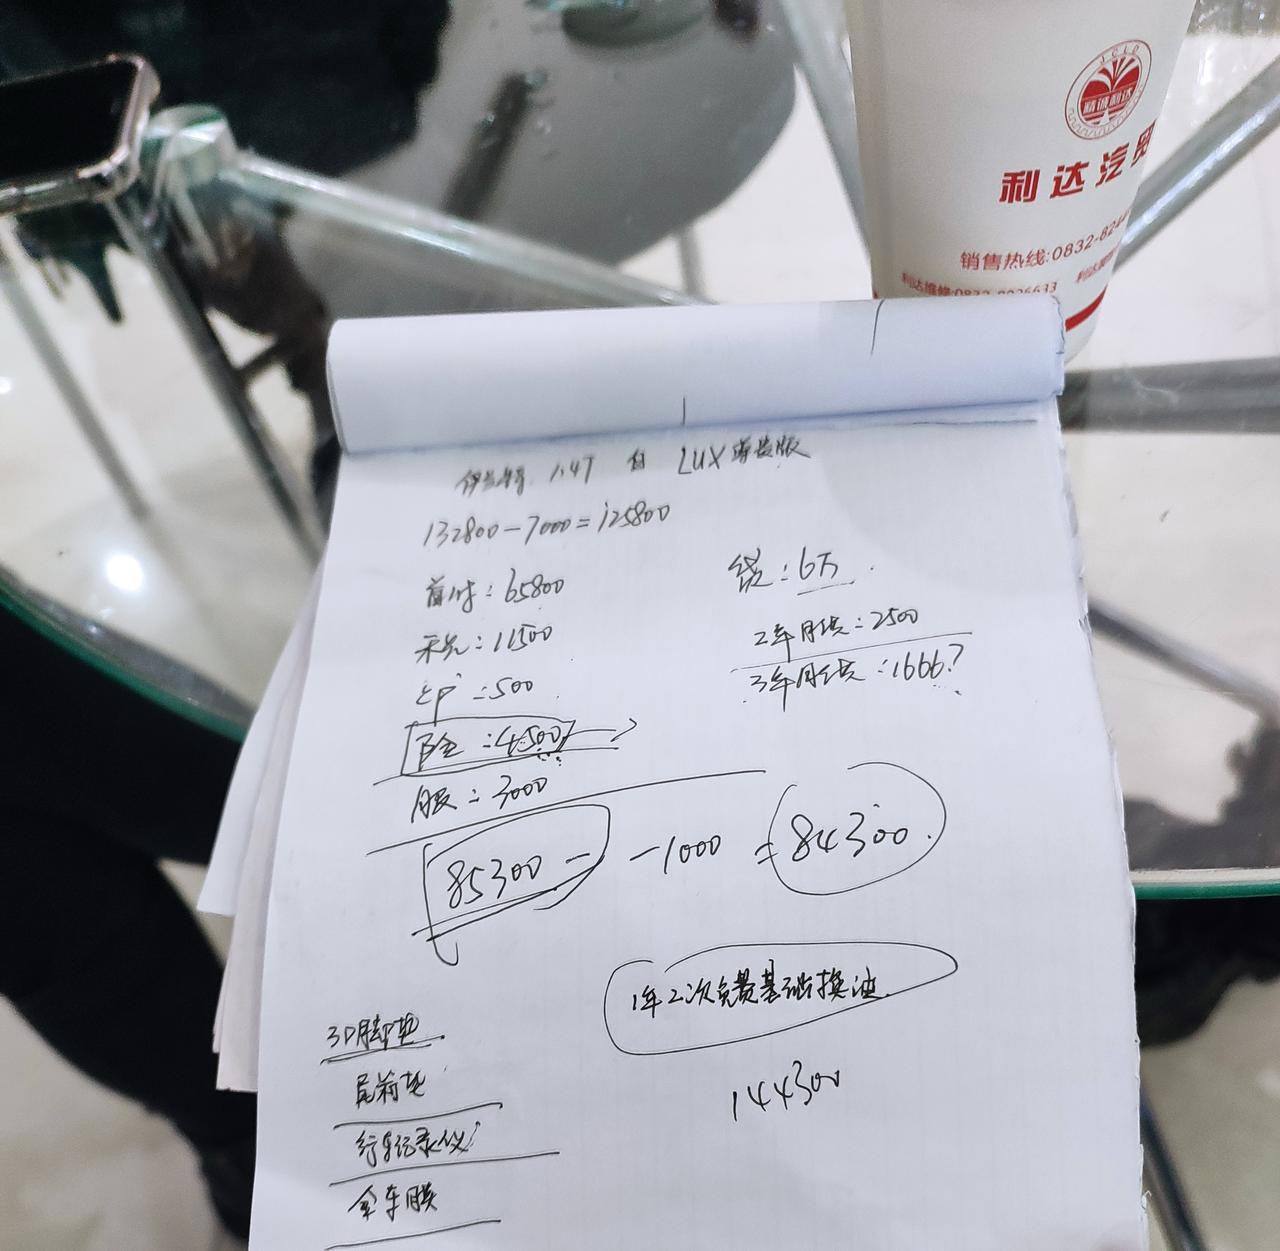 JCLD
精诚利达
利达汽贸
销售热线:0832-82
利达维修:0832-8026633
伊兰特 1.4T 自 LUX尊贵版
132800-7000=125800
首付:65800
贷:6万
税:11500
2年月供:2500
3年月供:1666?
上户:500
险:4500
服:3000
85300- -1000=84300.
1年2次免费基础换油
3D脚垫
144300
尾箱垫
行车记录仪
全车膜